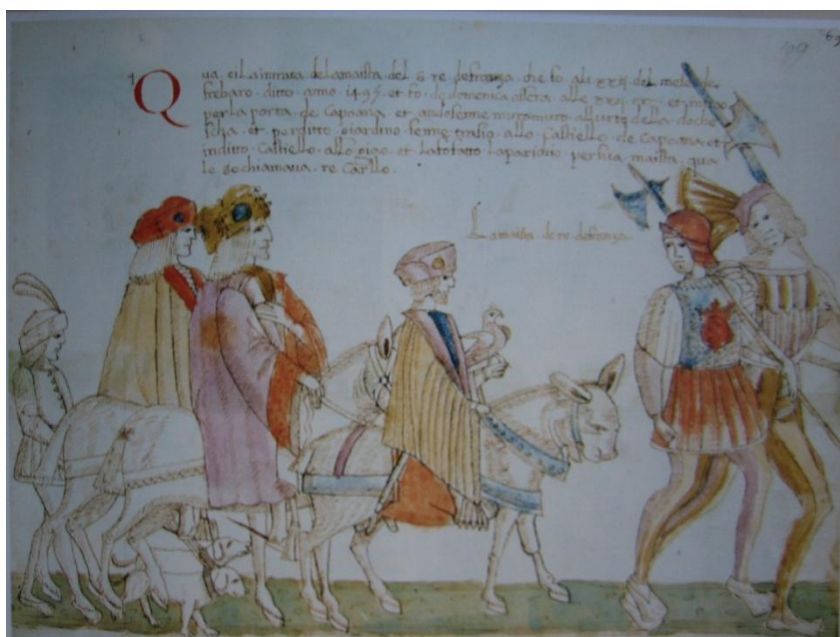 Qua e la intrata de la maista del S re de franza che fo ali xxij del mese de
frebaro ditto anno 1495 et fo de domenica
per la porta de Capoana et andosenne muro muro all urto della doche
scha et per ditto giardino senne trasio allo Castiello de Capoana et
in ditto Castiello allogiao et la fo fatto lo paridio per sua maista qua
le se chiamava re Carllo
La maista de re de franza
199